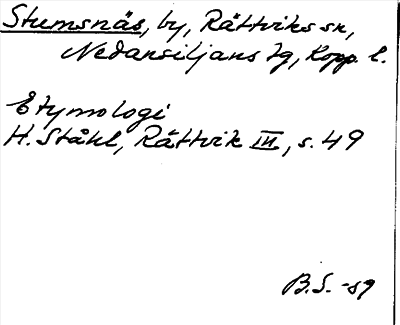 Stumsnäs, by, Rättviks sn,
Nedansiljans tg, Kopp. l.
Etymologi
H. Ståhl, Rättvik III, s. 49
B.S. -59